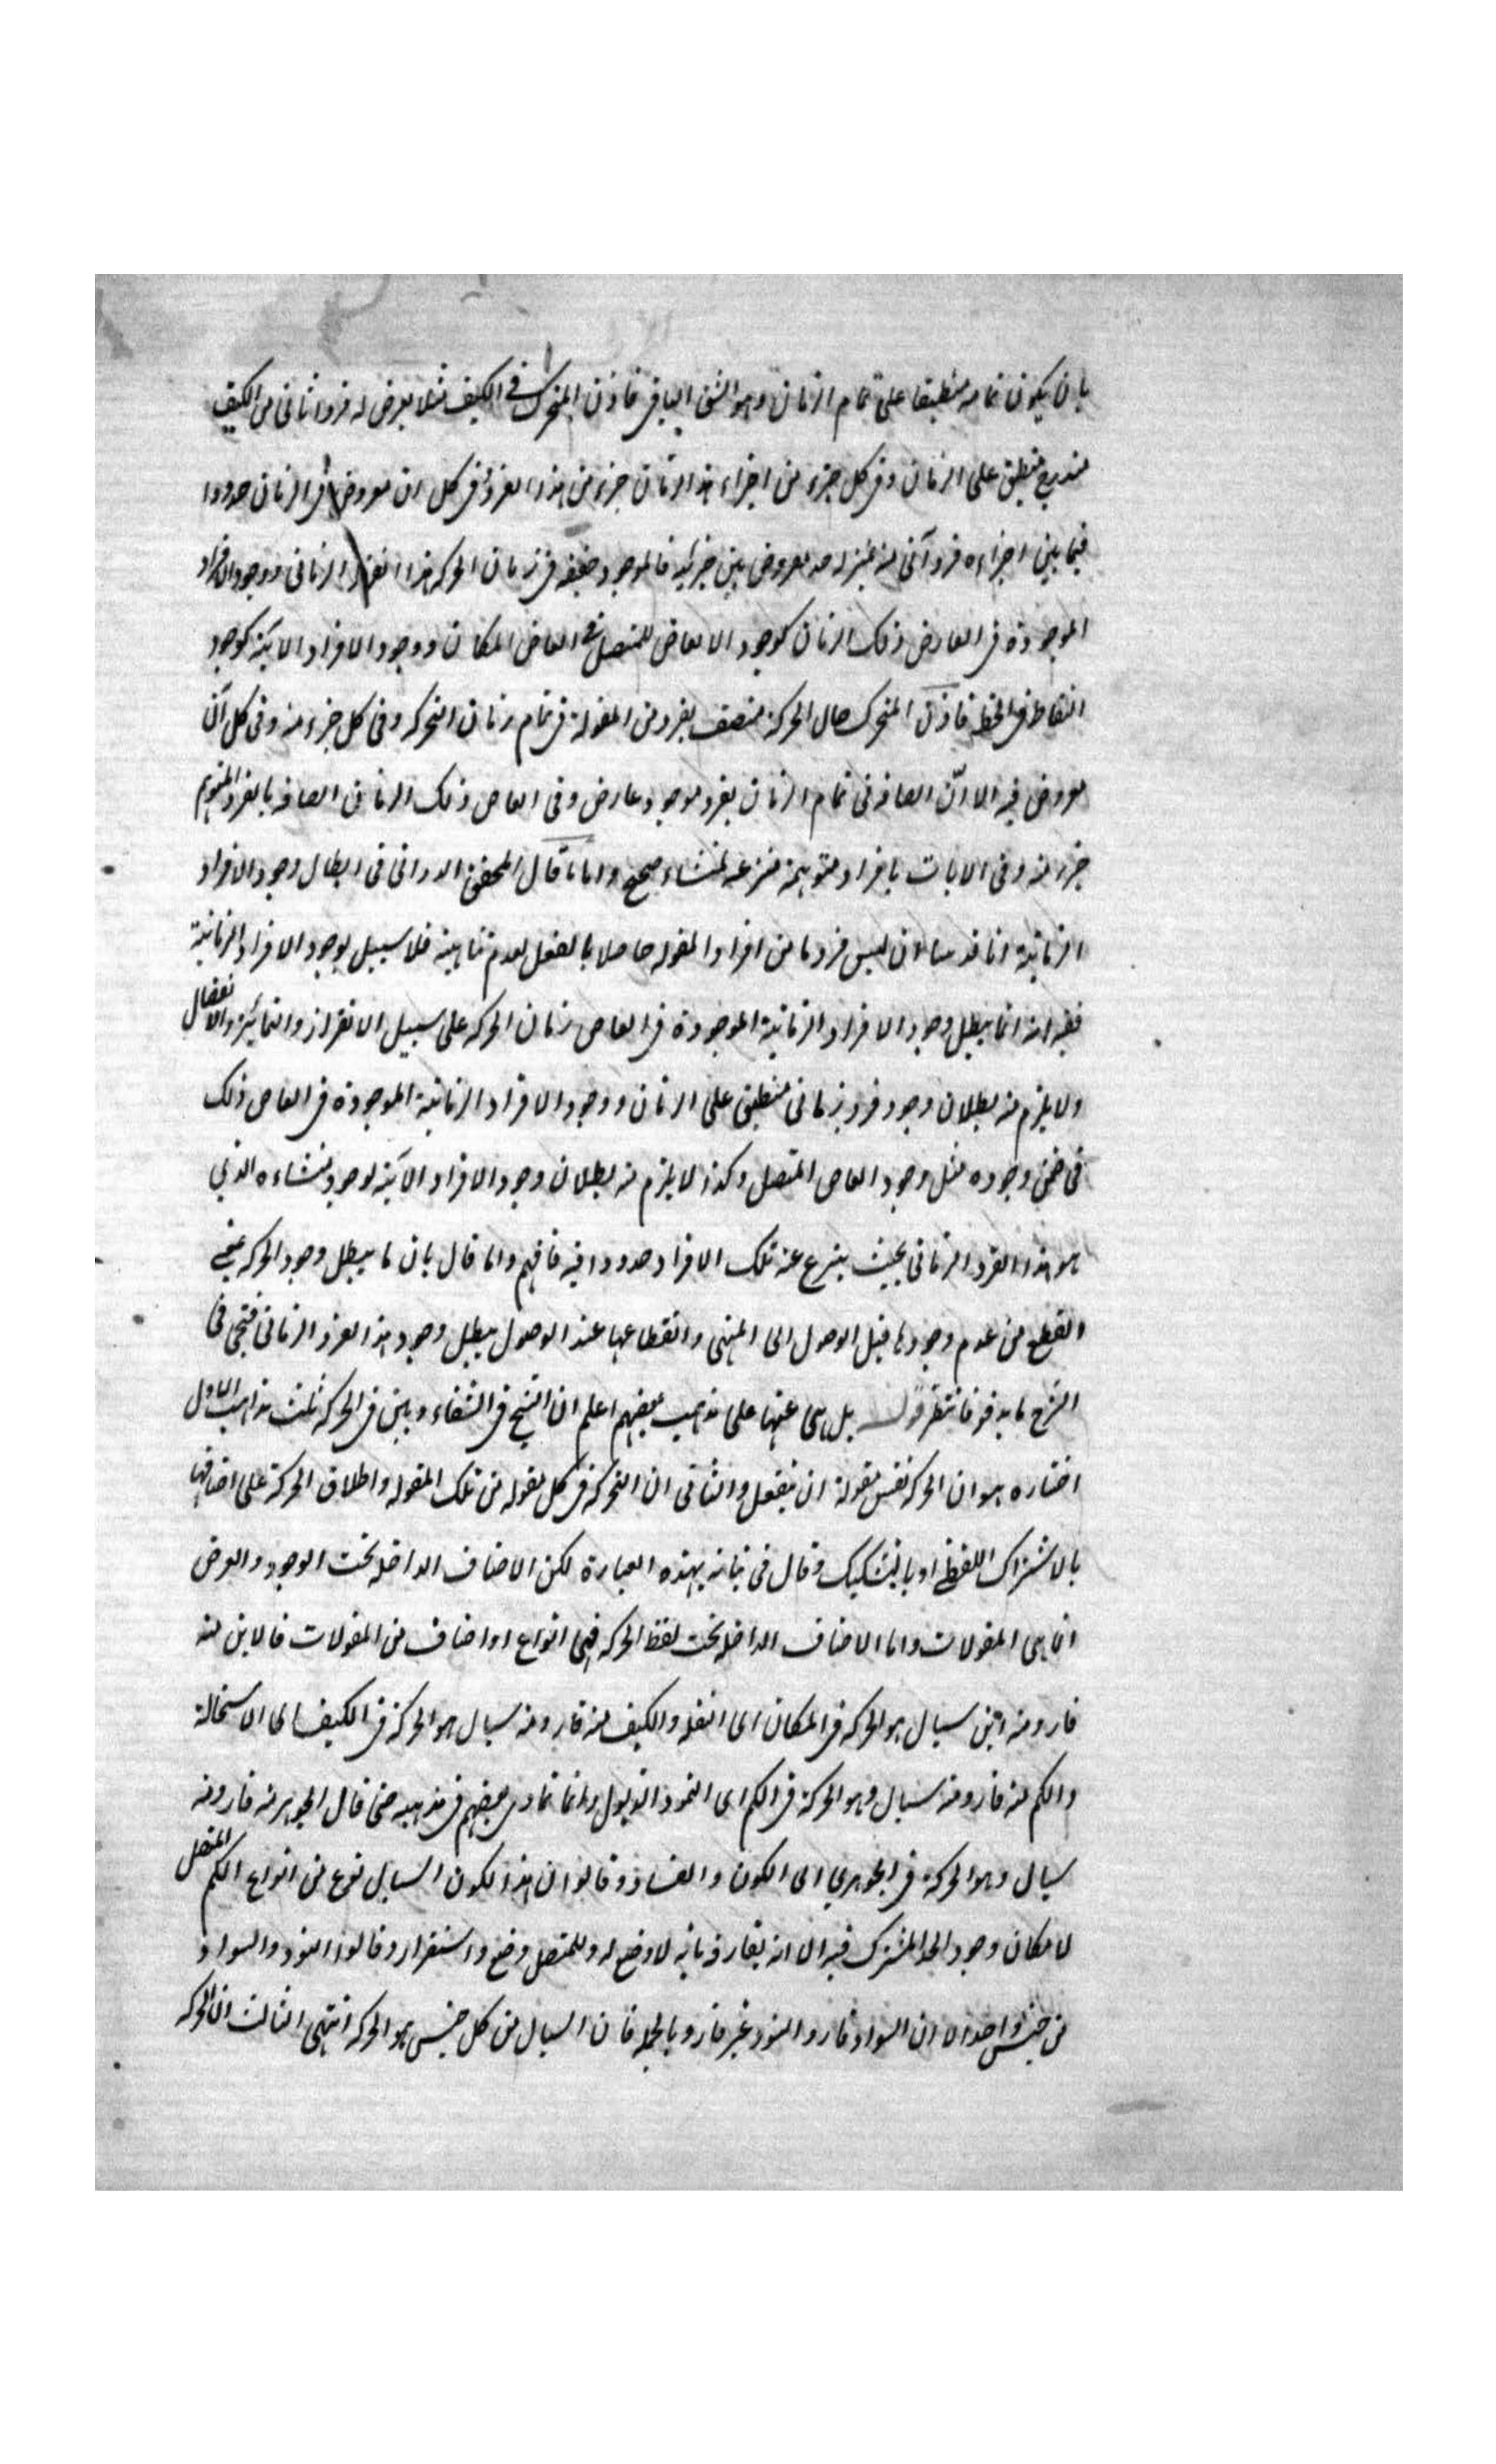 بان يكون تمامه منطبقا على تمام الزمان وهو الشق الباقى فاذن المتحرك فى الكيف مثلا يعرض له فرد زمانى من الكيف
متدرج منطبق على الزمان وفى كل جزء من اجزاء هذا الزمان جزء من هذا الفرد وفى كل ان مفروض فى الزمان حدودا
فيما بين اجزاءه فرد آنى منه بمنزله حد مفروض بين جزئيه فالموجود حقيقه فى زمان الحركه هذا الفرد الزمانى ووجود الافراد
الموجودة فى ابعاض ذلك الزمان كوجود الابعاض للمتصل فى ابعاض المكان ووجود الافراد الانية كوجود
النقاط فى الخط فاذن المتحرك حال الحركة متصف بفرد من المقولة فى تمام زمان التحركه وفى كل جزء منه وفى كل آن
مفروض فيه الا انّ اتصافه فى تمام الزمان بفرد موجود عارض وفى ابعاض ذلك الزمان اتصافه بالفرد المتوهم
جزء منه وفى الانات بافراد متوهمة منتزعه لمنشاء صحيح واما ما قال المحقق الدوانى فى ابطال وجود الافراد
الزمانية انا قد ان ليس فرد ما من افراد المقوله حاصلا بالفعل لعدم تناهيه فلا سبيل لوجود الافراد الزمانية
ففيه انه انما يبطل وجود الافراد الزمانية الموجودة فى ابعاض زمان الحركه على سبيل الانفراز والتمايز والانفصال
ولا يلزم منه بطلان وجود فرد زمانى منطبق على الزمان ووجود الافراد الزمانية الموجودة فى ابعاض ذلك
فى ضمن وجوده مثل وجود ابعاض المتصل وكذا لا يلزم منه بطلان وجود الافراد الانية لوجود منشاءه الذي
هو هذا الفرد الزمانى بحيث ينتزع عنه تلك الافراد حدودا فيه فافهم واما قال بان ما يبطل وجود الحركه بمعنى
القطع من عدم وجودها قبل الوصول الى المنتهى وانقطاعها عند الوصول يبطل وجود هذا الفرد الزمانى فيجى فى
الشرح ما به فانتظر قوله بل هى عينها على مذهب بعضهم اعلم ان الشيخ فى الشفاء وبين فى الحركه ثلث مذاهب الاول
اختاره هو ان الحركه نفس مقولة ان ينفعل والثانى ان الحركه فى كل مقوله من تلك المقوله واطلاق الحركة على اصنافها
بالاشتراك اللفظي او بالتشكيك وقال فى بيانه بهذه العبارة لكن الاصناف الداخله تحت الوجود والعرض
انما هى المقولات واما الاصناف الداخله تحت لفظ الحركه فهى انواع او اصناف من المقولات فالاين منه
قار ومنه اين سيال هو الحركه فى المكان اى النقله والكيف منه قار ومنه سيال هو الحركة فى الكيف اى الاستحالة
والكم منه قار ومنه سيال وهو الحركة فى الكم اى النمو والذبول وانما تمادى بعضهم فى مذهبه حتى قال الجوهر منه قار ومنه
سيال وهو الحركة فى الجوهري اى الكون والفساد وقالوا ان هذا الكون السيال نوع من انواع الكم المتصل
لامكان وجود الحد المشترك فيه الا انه يفارقه بانه لا وضع له وللمتصل وضع واستقرار وقالوا التسود والسواد
من جنس واحد الا ان السواد قار والتسود غير قار وبالجمله فان السيال من كل جنس هو الحركه انتهى الثالث ان الحركه